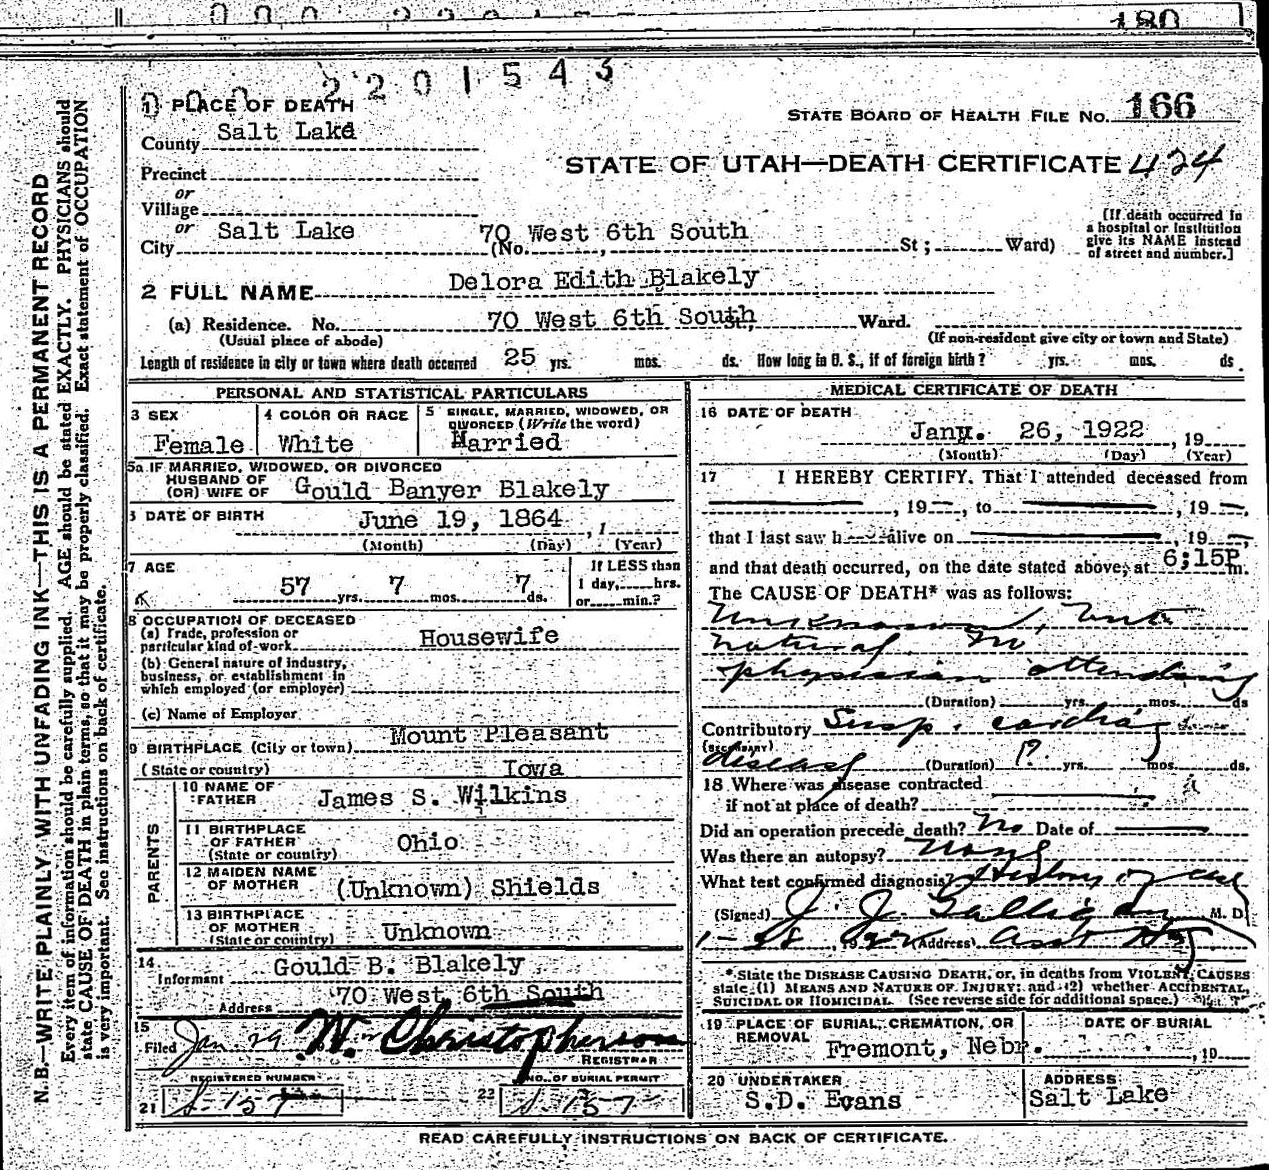 180
000 2201543
1 PLACE OF DEATH
STATE BOARD OF HEALTH FILE No. 166
County Salt Lake
STATE OF UTAH—DEATH CERTIFICATE 424
Precinct
or
Village
or
City Salt Lake (No. 70 West 6th South St; Ward)
[If death occurred in
a hospital or institution
give its NAME instead
of street and number.]
2 FULL NAME Delora Edith Blakely
(a) Residence. No. 70 West 6th South St, Ward.
(Usual place of abode) (If non-resident give city or town and State)
Length of residence in city or town where death occurred 25 yrs. mos. ds. How long in U. S., if of foreign birth? yrs. mos. ds
PERSONAL AND STATISTICAL PARTICULARS
3 SEX
Female
4 COLOR OR RACE
White
5 SINGLE, MARRIED, WIDOWED, OR
DIVORCED (Write the word)
Married
5a IF MARRIED, WIDOWED, OR DIVORCED
HUSBAND OF
(OR) WIFE OF Gould Banyer Blakely
DATE OF BIRTH June 19, 1864
(Month) (Day) (Year)
7 AGE
57 yrs. 7 mos. 7 ds.
If LESS than
1 day, hrs.
or min.?
8 OCCUPATION OF DECEASED
(a) Trade, profession or
particular kind of work Housewife
(b) General nature of industry,
business, or establishment in
which employed (or employer)
(c) Name of Employer
9 BIRTHPLACE (City or town) Mount Pleasant
(State or country) Iowa
PARENTS
10 NAME OF
FATHER James S. Wilkins
11 BIRTHPLACE
OF FATHER
(State or country) Ohio
12 MAIDEN NAME
OF MOTHER (Unknown) Shields
13 BIRTHPLACE
OF MOTHER
(State or country) Unknown
14
Informant Gould B. Blakely
Address 70 West 6th South
15
Filed Jan. 29 W. Christopherson
REGISTRAR
REGISTERED NUMBER
21 S-157
NO. OF BURIAL PERMIT
22 S-157
MEDICAL CERTIFICATE OF DEATH
16 DATE OF DEATH
Jany. 26, 1922, 19
(Month) (Day) (Year)
17 I HEREBY CERTIFY, That I attended deceased from
, 19 , to , 19 ,
that I last saw h alive on , 19 ,
and that death occurred, on the date stated above, at 6;15P m.
The CAUSE OF DEATH* was as follows:
Unknown, but
natural. No
physician attending
(Duration) yrs. mos. ds
Contributory Susp. cardiac
(SECONDARY)
disease (Duration) ? yrs. mos. ds.
18 Where was disease contracted
if not at place of death?
Did an operation precede death? No Date of
Was there an autopsy? None
What test confirmed diagnosis? History of case
(Signed) J. J. Galligan M. D.
1-28, 1922 (Address) Asst
*State the DISEASE CAUSING DEATH, or, in deaths from VIOLENT CAUSES
state (1) MEANS AND NATURE OF INJURY; and (2) whether ACCIDENTAL,
SUICIDAL OR HOMICIDAL. (See reverse side for additional space.)
19 PLACE OF BURIAL, CREMATION, OR
REMOVAL Fremont, Nebr.
DATE OF BURIAL
, 19
20 UNDERTAKER
S.D. Evans
ADDRESS
Salt Lake
READ CAREFULLY INSTRUCTIONS ON BACK OF CERTIFICATE.
N. B.—WRITE PLAINLY WITH UNFADING INK—THIS IS A PERMANENT RECORD
Every item of information should be carefully supplied. AGE should be stated EXACTLY. PHYSICIANS should
state CAUSE OF DEATH in plain terms, so that it may be properly classified. Exact statement of OCCUPATION
is very important. See instructions on back of certificate.